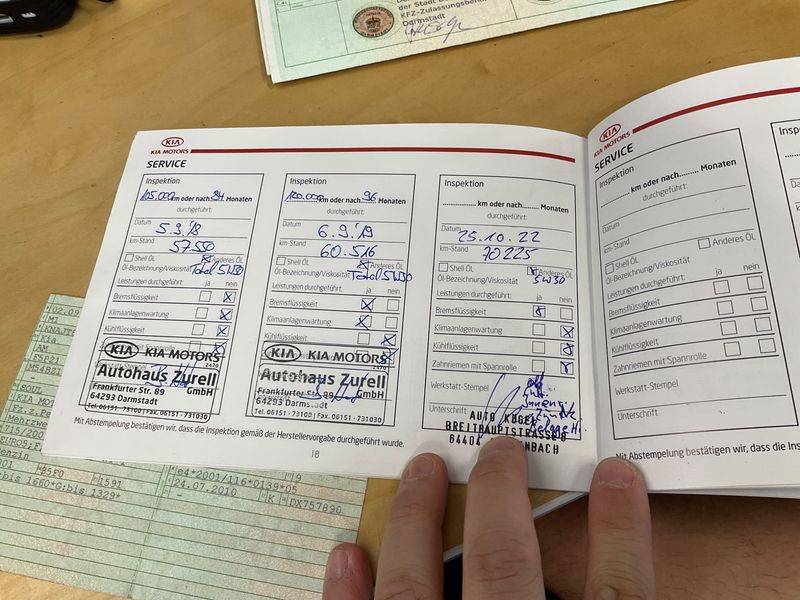 der Stadt
KFZ-Zulassungsbehör
Darmstadt
KIA
KIA MOTORS
SERVICE
Inspektion
105.000 km oder nach 84 Monaten
durchgeführt:
Datum
5.9.18
km-Stand
57550
Shell Öl
Anderes Öl
Öl-Bezeichnung/Viskosität
Total 5W30
Leistungen durchgeführt: ja nein
Bremsflüssigkeit
Klimaanlagenwartung
Kühlflüssigkeit
KIA KIA MOTORS
2470
Autohaus Zurell
GmbH
Frankfurter Str. 89
64293 Darmstadt
Tel. 06151 - 731030 | Fax. 06151 - 731031
Inspektion
120.000 km oder nach 96 Monaten
durchgeführt:
Datum
6.9.19
km-Stand
60.516
Shell Öl
Anderes Öl
Öl-Bezeichnung/Viskosität
Total 5W30
Leistungen durchgeführt: ja nein
Bremsflüssigkeit
Klimaanlagenwartung
Kühlflüssigkeit
KIA KIA MOTORS
2470
Autohaus Zurell
GmbH
Frankfurter Str. 89
64293 Darmstadt
Tel. 06151 - 731030 | Fax. 06151 - 731031
Inspektion
km oder nach Monaten
durchgeführt:
Datum
25.10.22
km-Stand
70225
Shell Öl
Anderes Öl
Öl-Bezeichnung/Viskosität
5W30
Leistungen durchgeführt: ja nein
Bremsflüssigkeit
Klimaanlagenwartung
Kühlflüssigkeit
Zahnriemen mit Spannrolle
Werkstatt-Stempel
Unterschrift
AUTO
BREITHAUPTSTRASSE
Mit Abstempelung bestätigen wir, dass die Inspektion gemäß der Herstellervorgabe durchgeführt wurde.
18
KIA
KIA MOTORS
SERVICE
Inspektion
km oder nach Monaten
durchgeführt:
Datum
km-Stand
Shell Öl
Anderes Öl
Öl-Bezeichnung/Viskosität
Leistungen durchgeführt: ja nein
Bremsflüssigkeit
Klimaanlagenwartung
Kühlflüssigkeit
Zahnriemen mit Spannrolle
Werkstatt-Stempel
Unterschrift
Mit Abstempelung bestätigen wir, dass die Ins
02.09
KNAJT
Kia
AM
F5P21
M54BZ1
SOUL
KIA MOT
Fz.z.Pe
Mehrzwe
715/200
EURO5
Benzin
0001 05F0 1591
bis 1660*G:bis 1329*
9
e4*2001/116*0139*05
24.07.2010 K DX757890
-